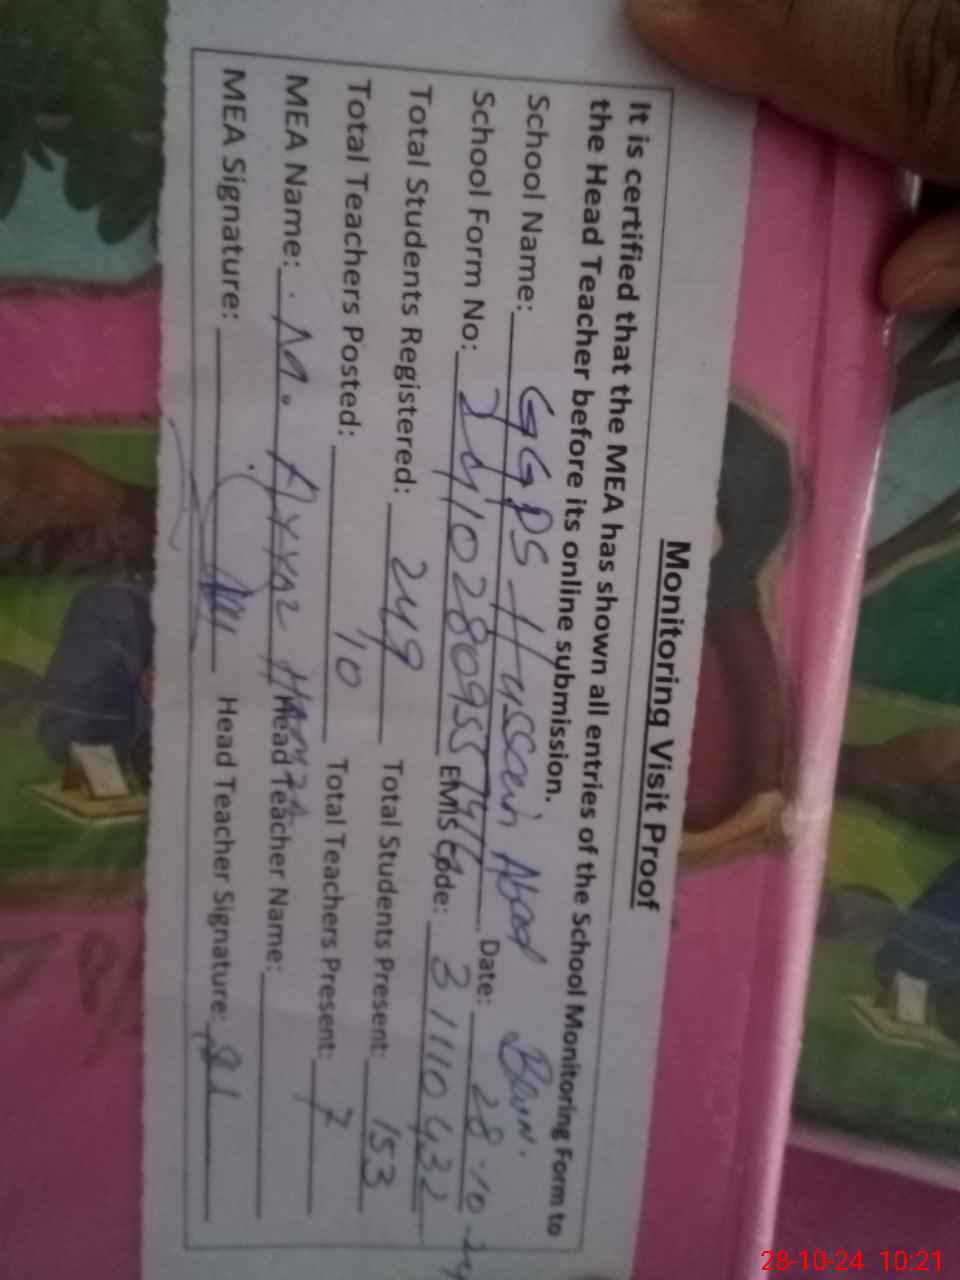 Monitoring Visit Proof
It is certified that the MEA has shown all entries of the School Monitoring Form to
the Head Teacher before its online submission.
School Name: GGPS Hussain Abad
School Form No: Date: 28-10-24
EMIS Code: 31110432
Total Students Registered: 249 Total Students Present: 153
Total Teachers Posted: 10 Total Teachers Present: 7
MEA Name: M. Hamza Head Teacher Name:
MEA Signature: Head Teacher Signature:
28-10-24 10:21